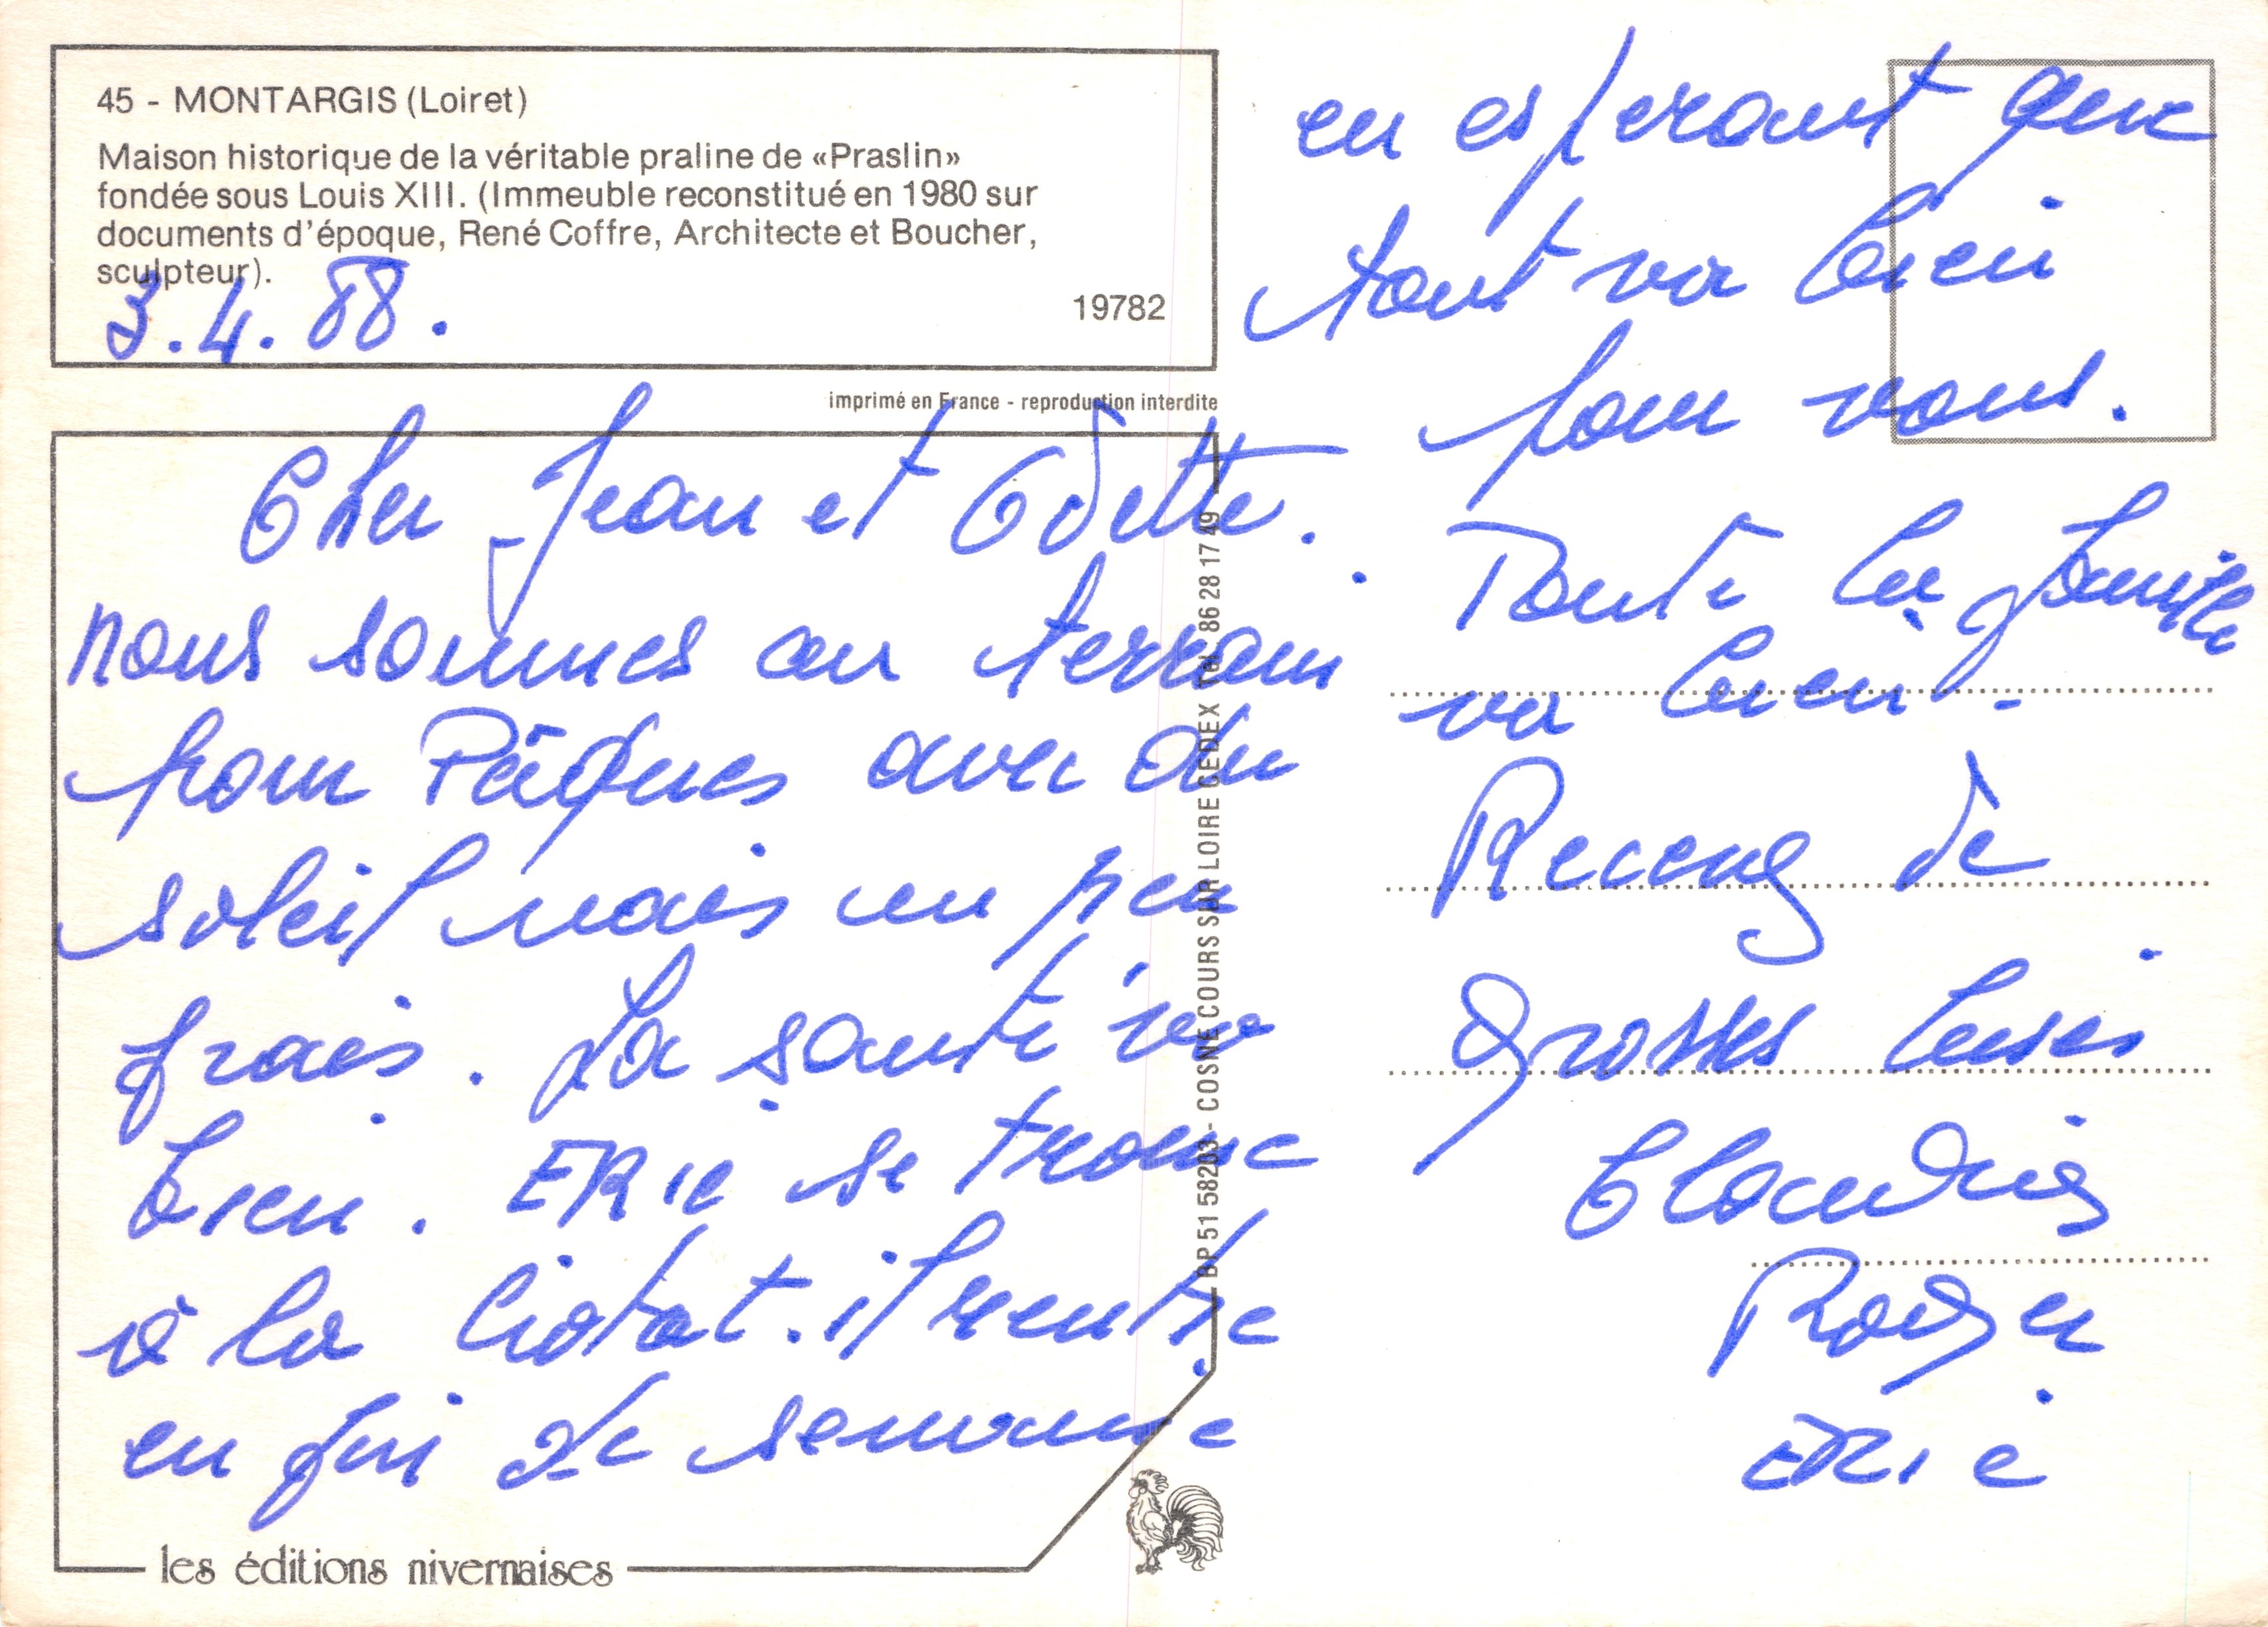 45 - MONTARGIS (Loiret)
Maison historique de la véritable praline de «Praslin»
fondée sous Louis XIII. (Immeuble reconstitué en 1980 sur
documents d'époque, René Coffre, Architecte et Boucher,
sculpteur).
19782
3.4.88.
imprimé en France - reproduction interdite
Cher Jean et Odette.
nous sommes au terrain
pour Pâques avec du
soleil mais un peu
frais. La santé va
bien. ERic se trouve
à la Ciotat. il rentre
en fin de semaine
les éditions nivernaises
BP 51 58203 - COSNE COURS SUR LOIRE CEDEX Tél. 86 28 17 49
en esperant que
tout va bien
pour vous.
Toute la famille
va bien.
Recevez de
grosses bises
Claudie
Roger
ERic